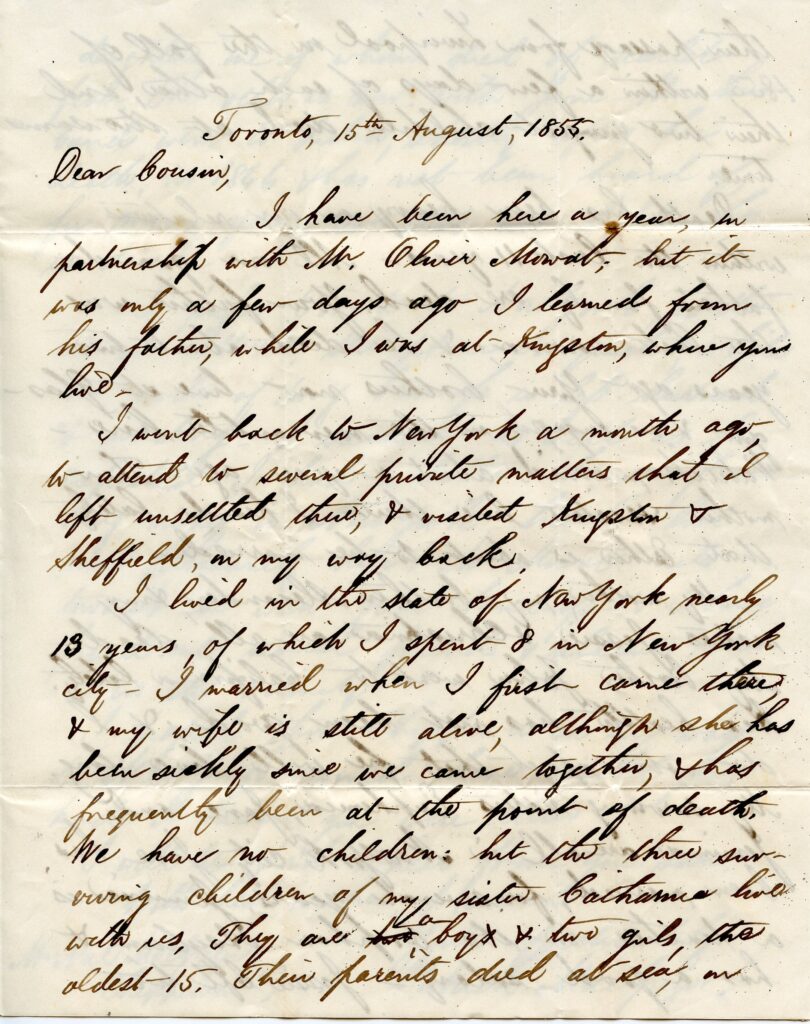 Toronto, 15th August, 1855.
Dear Cousin,
I have been here a year, in
partnership with Mr. Oliver Mowat; but it
was only a few days ago I learned from
his father, while I was at Kingston, where you
live-
I went back to New York a month ago,
to attend to several private matters that I
left unsettled there, & visited Kingston &
Sheffield, on my way back.
I lived in the state of New York nearly
13 years, of which I spent 8 in New York
city - I married when I first came there,
& my wife is still alive, although she has
been sickly since we came together, & has
frequently been at the point of death.
We have no children: but the three sur-
viving children of my sister Catharine live
with us, They are two a boys & two girls, the
oldest 15. Their parents died at sea, on